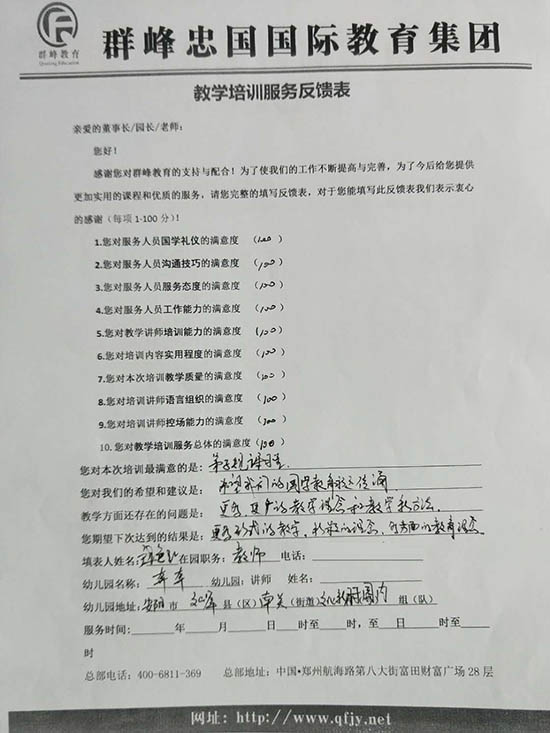 群峰教育
Qunfeng Education
群峰忠国国际教育集团
教学培训服务反馈表
亲爱的董事长/园长/老师：
您好！
感谢您对群峰教育的支持与配合！为了使我们的工作不断提高与完善，为了今后给您提供
更加实用的课程和优质的服务，请您完整的填写反馈表，对于您能填写此反馈表我们表示衷心
的感谢（每项 1-100 分）！
1.您对服务人员国学礼仪的满意度 （100）
2.您对服务人员沟通技巧的满意度 （100）
3.您对服务人员服务态度的满意度 （100）
4.您对服务人员工作能力的满意度 （100）
5.您对教学讲师培训能力的满意度 （100）
6.您对培训内容实用程度的满意度 （100）
7.您对本次培训教学质量的满意度 （100）
8.您对培训讲师语言组织的满意度 （100）
9.您对培训讲师控场能力的满意度 （100）
10.您对教学培训服务总体的满意度（100）
您对本次培训最满意的是：弟子规课
您对我们的希望和建议是：希望我们的国学教育
教学方面还存在的问题是：更
您期望下次达到的结果是：更多 的教学，
填表人姓名： 在园职务：教师 电话：
幼儿园名称： 幼儿园：讲师 姓名：
幼儿园地址：安阳市 文峰县（区）南关（街道） 组（队）
服务时间： 年 月 日 时至 时， 日 时至
时
总部电话：400-6811-369 总部地址：中国•郑州航海路第八大街富田财富广场 28 层
网址：http://www.qfjy.net